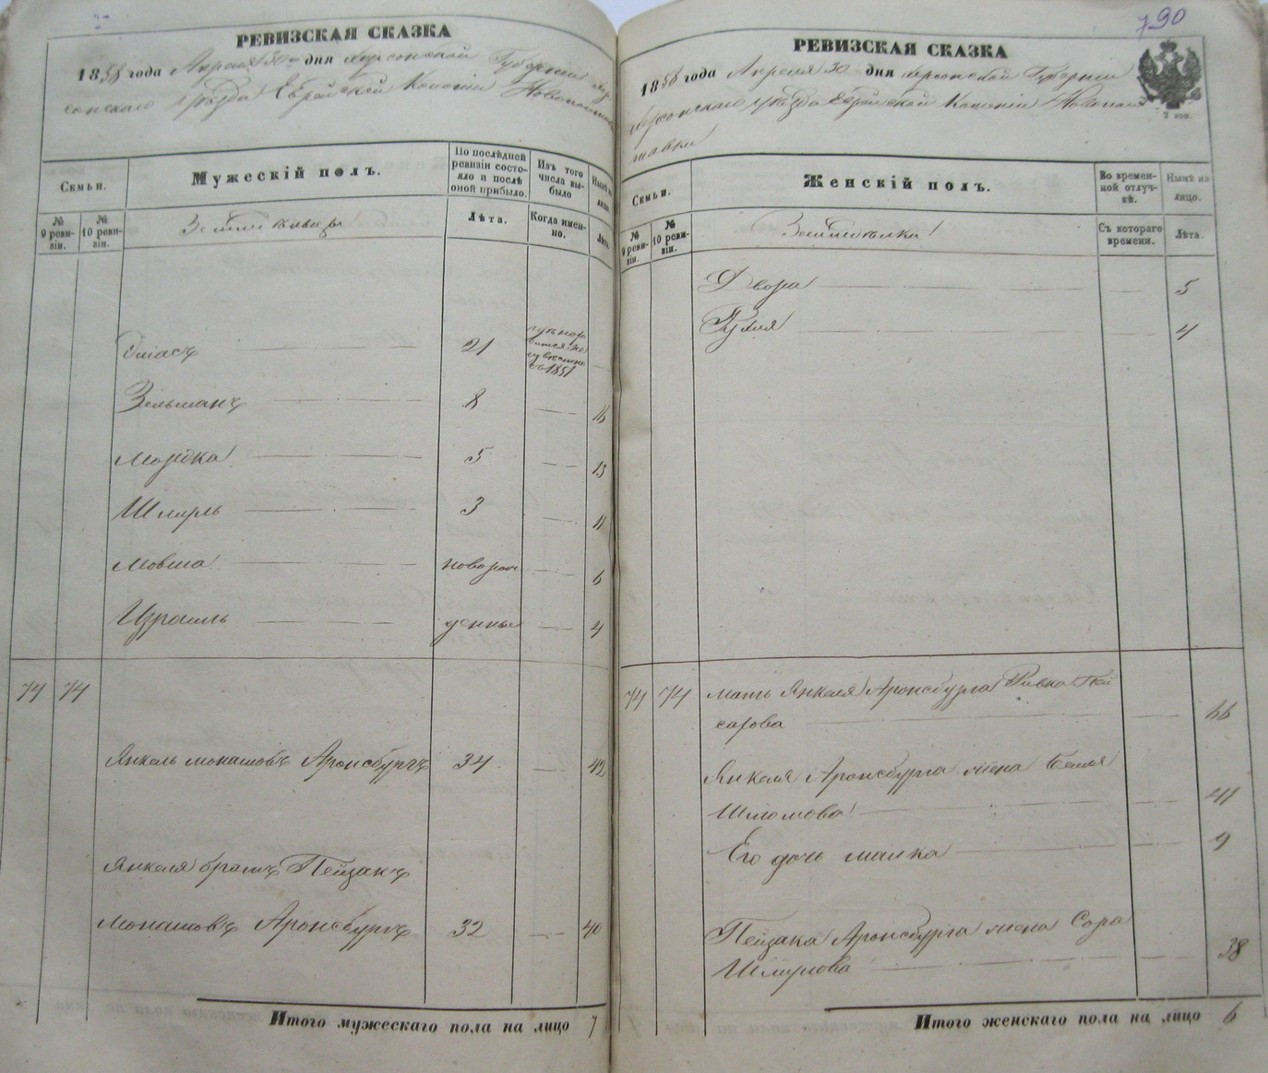 РЕВИЗСКАЯ СКАЗКА
1858 года Апреля 30 дня Херсонской Губернии Хер
сонскаго уѣзда Еврейской Колоніи Новополтавки
Семьи.
Мужескій полъ.
По послѣдней ревизіи состояло и послѣ оной прибыло.
Изъ того числа выбыло
Нынѣ на лицо.
№ 9 ревизіи.
№ 10 ревизіи.
Лѣта.
Когда именно.
Лѣта
21
1851
Зельманъ 8 16
Мордка 5 13
Шмуль 3 11
Мовша новорож 6
Израиль денные 4
74 74
Янкель Монашовъ Аронсбургъ 34 42
Янкеля братъ Пейзакъ
Монашовъ Аронсбургъ 32 40
Итого мужескаго пола на лицо 7
790
РЕВИЗСКАЯ СКАЗКА
1858 года Апреля 30 дня Херсонской Губерніи
Херсонскаго уѣзда Еврейской Колоніи Новопол
тавки
2 коп.
Семьи.
Женскій полъ.
Во временной отлучкѣ.
Нынѣ на лицо.
№ 9 ревизіи.
№ 10 ревизіи.
Съ котораго времени.
Лѣта.
Двора 5
4
74 74 Мать Янкеля Аронсбурга Ривка Пей
сахова 66
Янкеля Аронсбурга жена Бейля
Шломова 41
Его дочь Малка 9
Пейзака Аронсбурга жена Сора
Шмулова 38
Итого женскаго пола на лицо 6